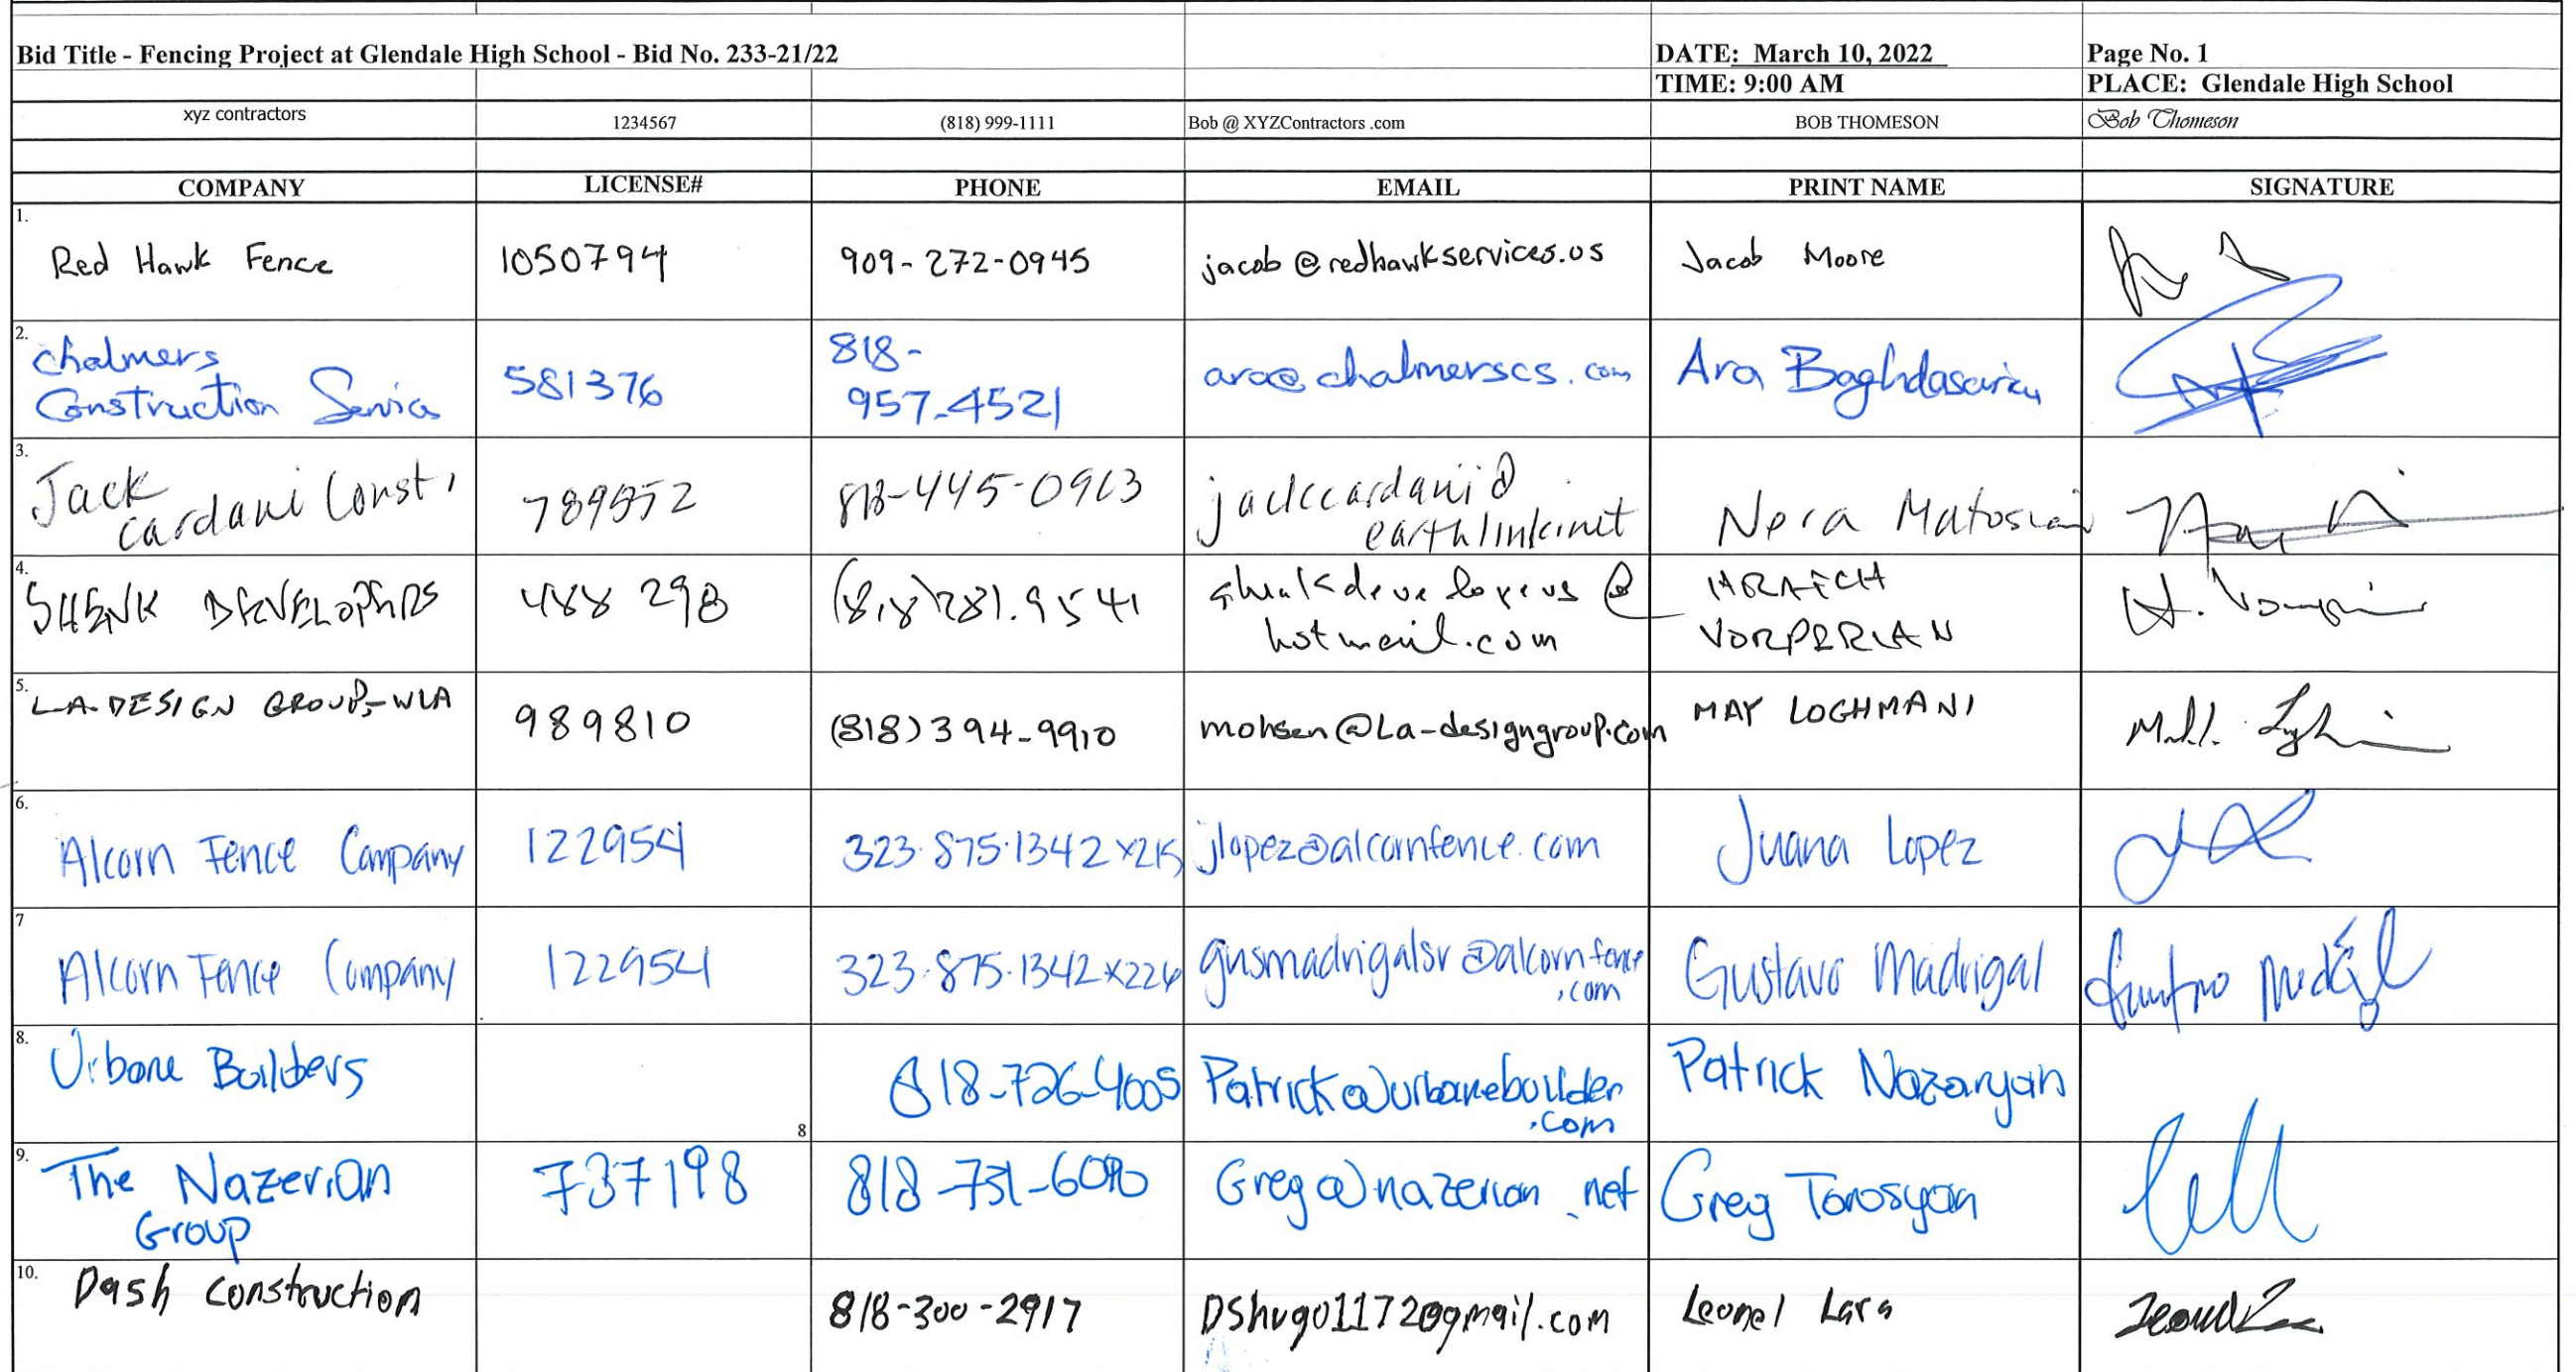 Bid Title - Fencing Project at Glendale High School - Bid No. 233-21/22 DATE: March 10, 2022 Page No. 1
TIME: 9:00 AM PLACE: Glendale High School
xyz contractors 1234567 (818) 999-1111 Bob @ XYZContractors .com BOB THOMESON Bob Thomeson
COMPANY LICENSE# PHONE EMAIL PRINT NAME SIGNATURE
1.
Red Hawk Fence 1050794 909-272-0945 jacob@redhawkservices.us Jacob Moore
2.
Chalmers 818-
Construction Service 581376 957-4521 ara@chalmerscs.com Ara Baghdasarian
3.
Jack jackcardani@
Cardani Const. 789552 818-445-0913 earthlink.net Nora Matosian
4.
SHENK DEVELOPERS 488 298 (818) 781.9541 shenkdevelopers @ HRAICH
hotmail.com VORPERIAN
5.
L.A. DESIGN GROUP-WLA 989810 (818)394-9910 mohsen@La-designgroup.com MAY LOGHMANI
6.
Alcorn Fence Company 122954 323.875.1342 x215 jlopez@alcornfence.com Juana Lopez
7
Alcorn Fence Company 122954 323.875.1342 x224 gusmadrigalsr@alcornfence Gustavo Madrigal
.com
8.
Urbane Builders 818-726-4005 Patrick@urbanebuilder Patrick Nazaryan
.com
8
9.
The Nazerian 737198 818-731-6090 Greg@nazerian.net Greg Torosyan
Group
10.
Dash Construction 818-300-2917 DShugo1172@gmail.com Leonel Lara